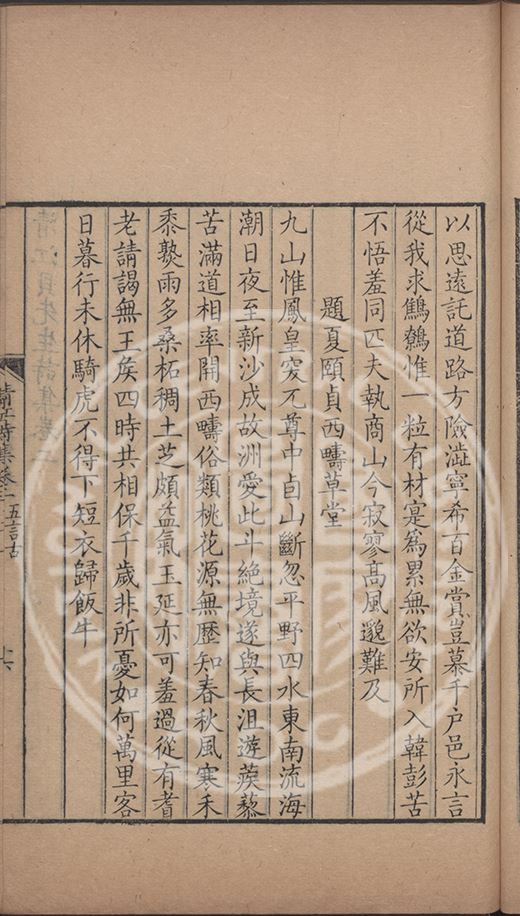 以思遠託道路方險澁寧希百金賞豈慕千戶邑永言
從我求鷦鷯惟一粒有材寔爲累無欲安所入韓彭苦
不悟羞同匹夫執商山今寂寥高風邈難及
題夏頤貞西疇草堂
九山惟鳳皇穾兀尊中卣山斷忽平野四水東南流海
潮日夜至新沙成故洲愛此斗絕境遂與長沮遊蒺藜
苦滿道相率開西疇俗類桃花源無歷知春秋風寒禾
黍熟雨多桑柘稠土芝頗益氣玉延亦可羞過從有耆
老請謁無王矦四時共相保千歲非所憂如何萬里客
日暮行未休騎虎不得下短衣歸飯牛
清江詩集卷二
五言古
十六